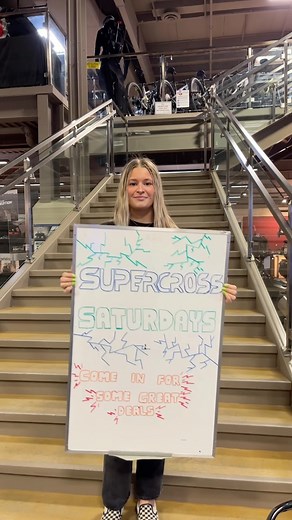 SUPERCROSS
SATURDAYS
COME IN FOR
SOME GREAT
DEALS